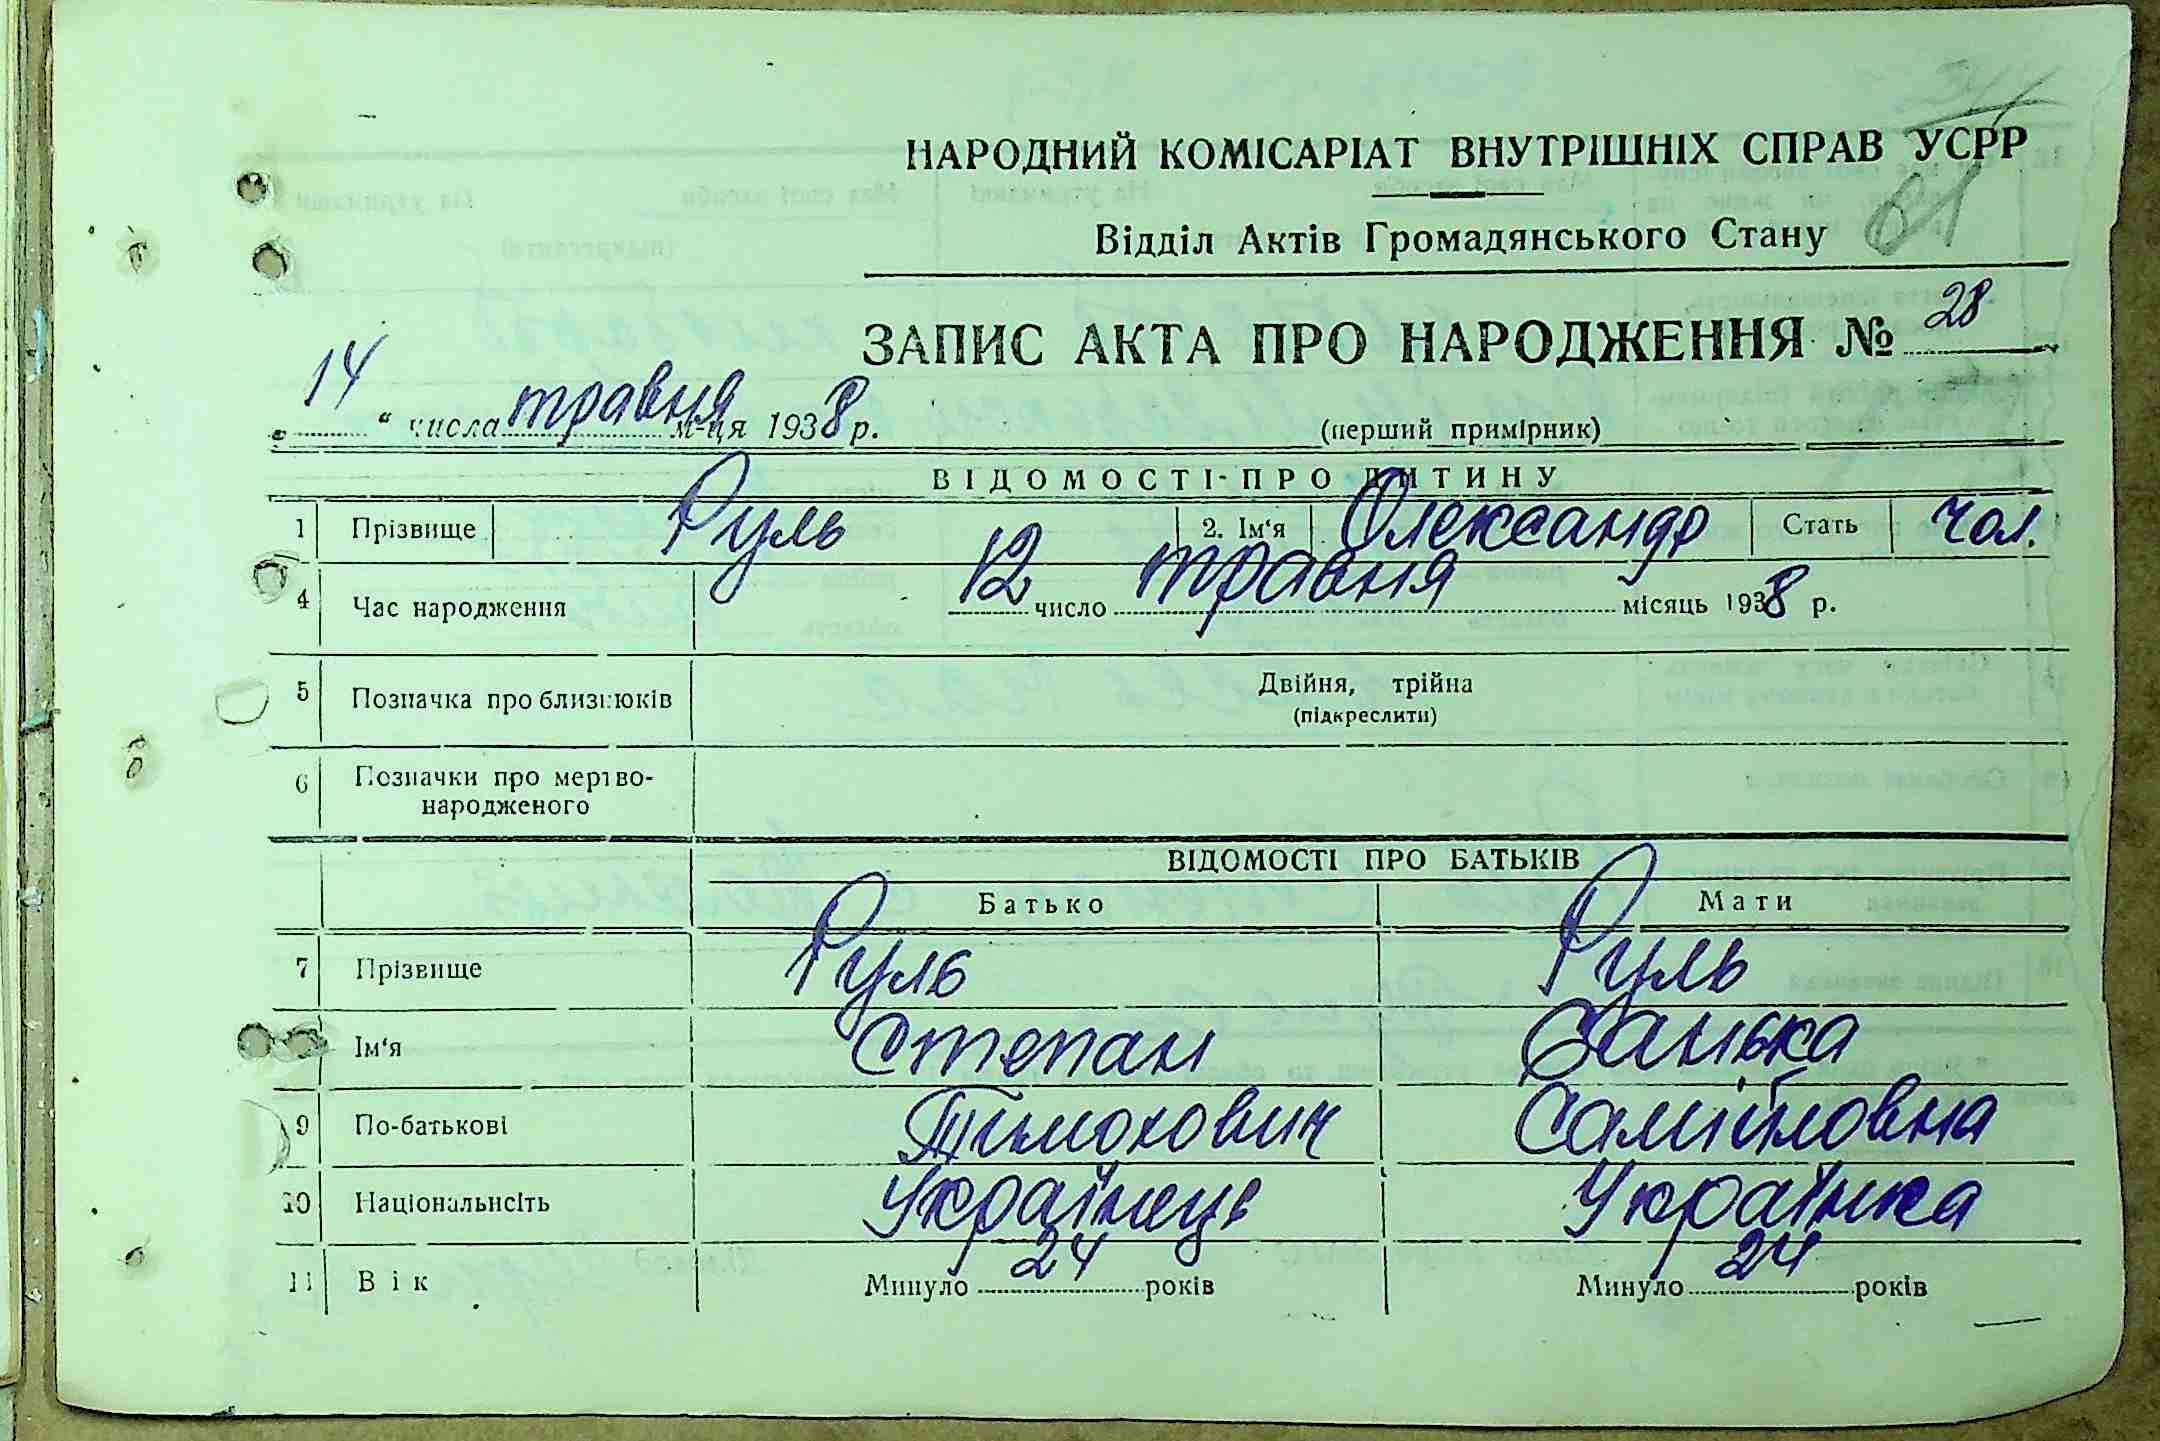 НАРОДНИЙ КОМІСАРІАТ ВНУТРІШНІХ СПРАВ УСРР
Відділ Актів Громадянського Стану 61
ЗАПИС АКТА ПРО НАРОДЖЕННЯ № 28
„ 14 “ числа травня м-ця 1938 р. (перший примірник)
ВІДОМОСТІ ПРО ДИТИНУ
1 Прізвище Руль 2. Ім‘я Олександр Стать чол.
4 Час народження 12 число травня місяць 1938 р.
5 Позначка про близнюків Двійня, трійна
(підкреслити)
6 Позначки про мертво-
народженого
ВІДОМОСТІ ПРО БАТЬКІВ
Батько Мати
7 Прізвище Руль Руль
Ім‘я Степан Ганька
9 По-батькові Тимохович Самійловна
10 Національність Українець Українка
11 Вік Минуло 24 років Минуло 24 років